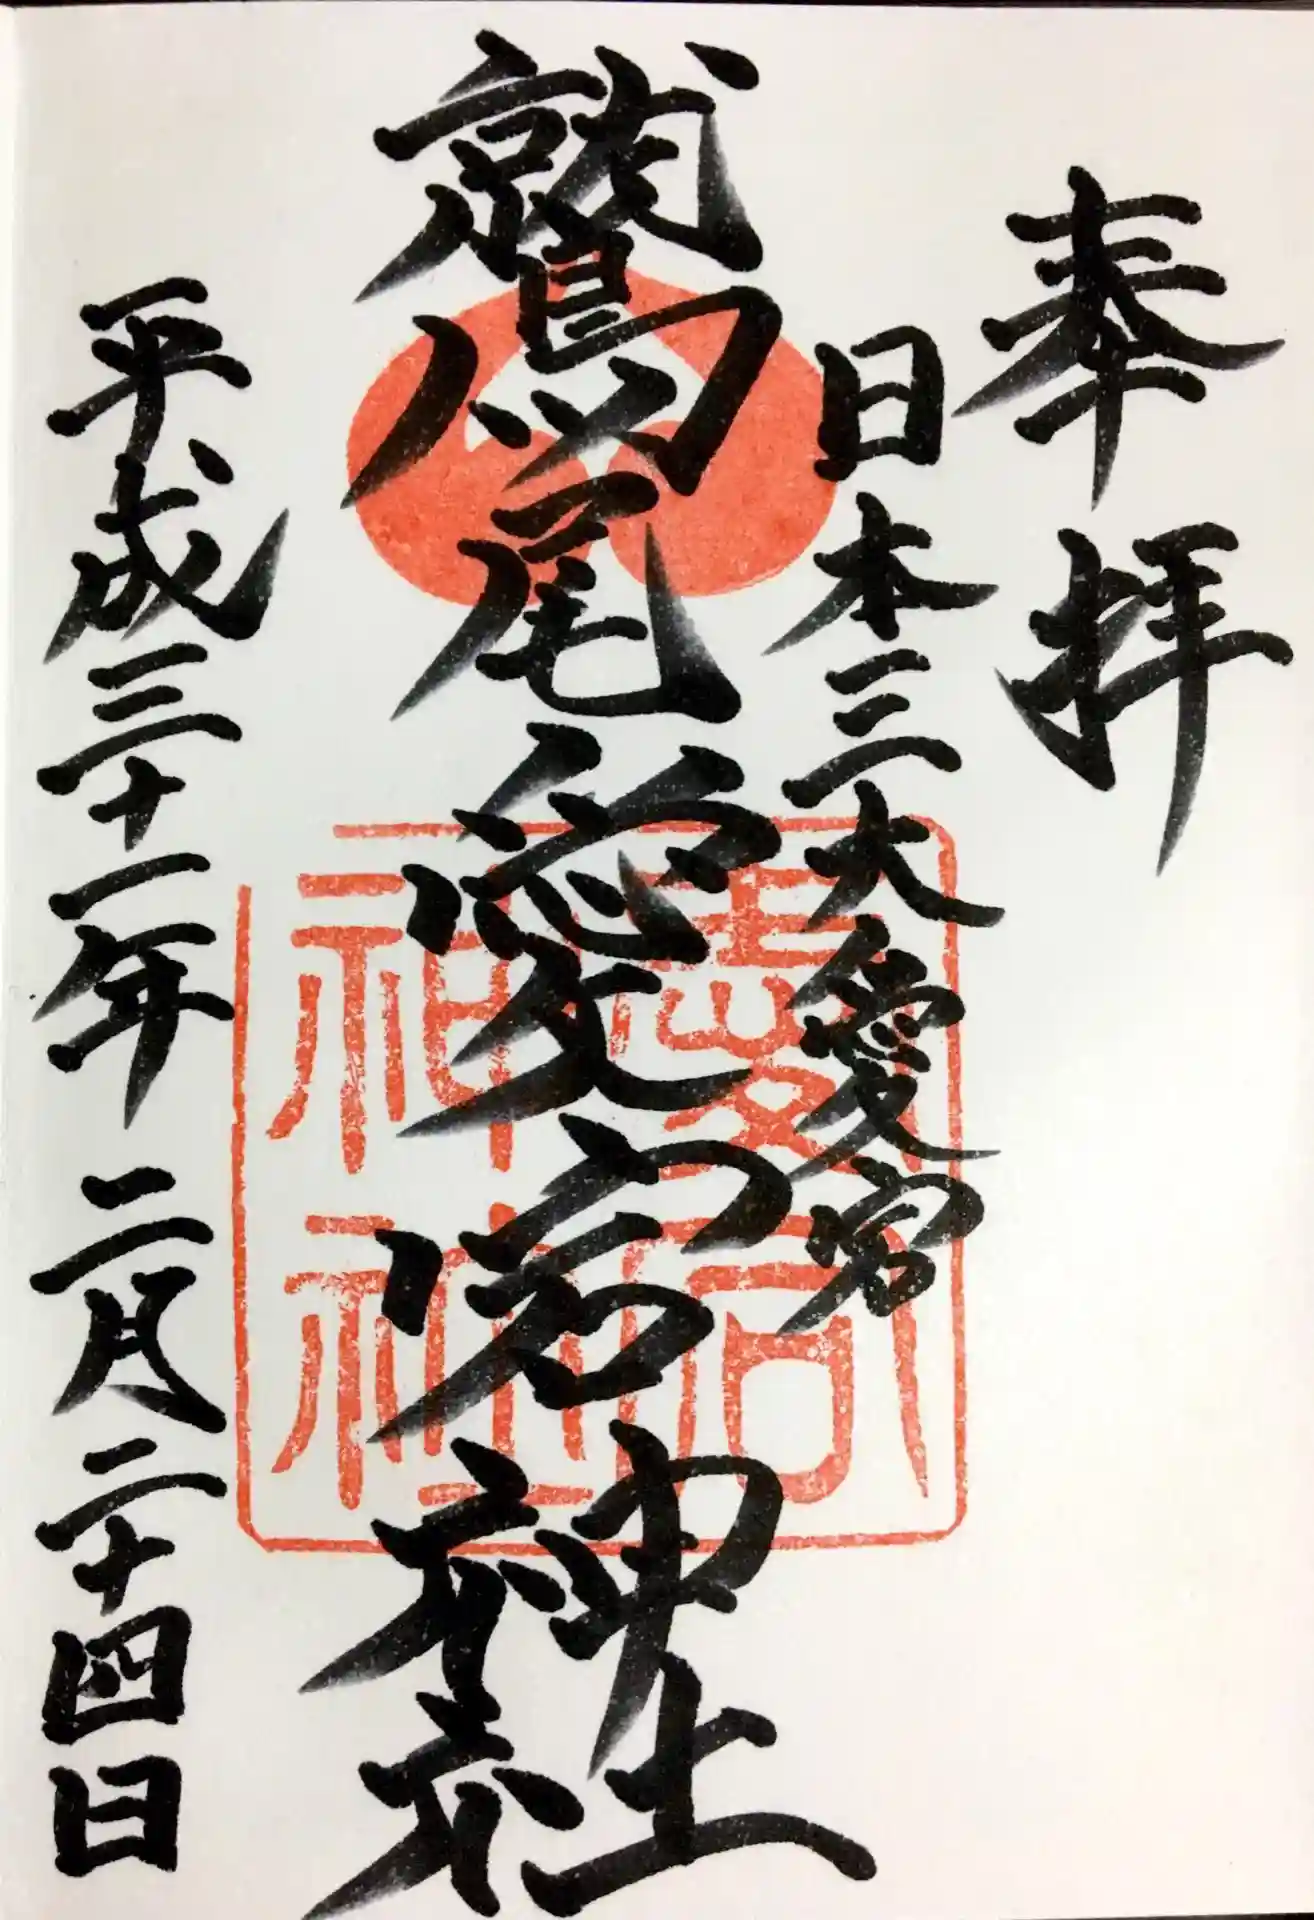 奉拝
日本三大愛宕
鷲尾愛宕神社
愛宕神社
平成三十一年二月二十四日